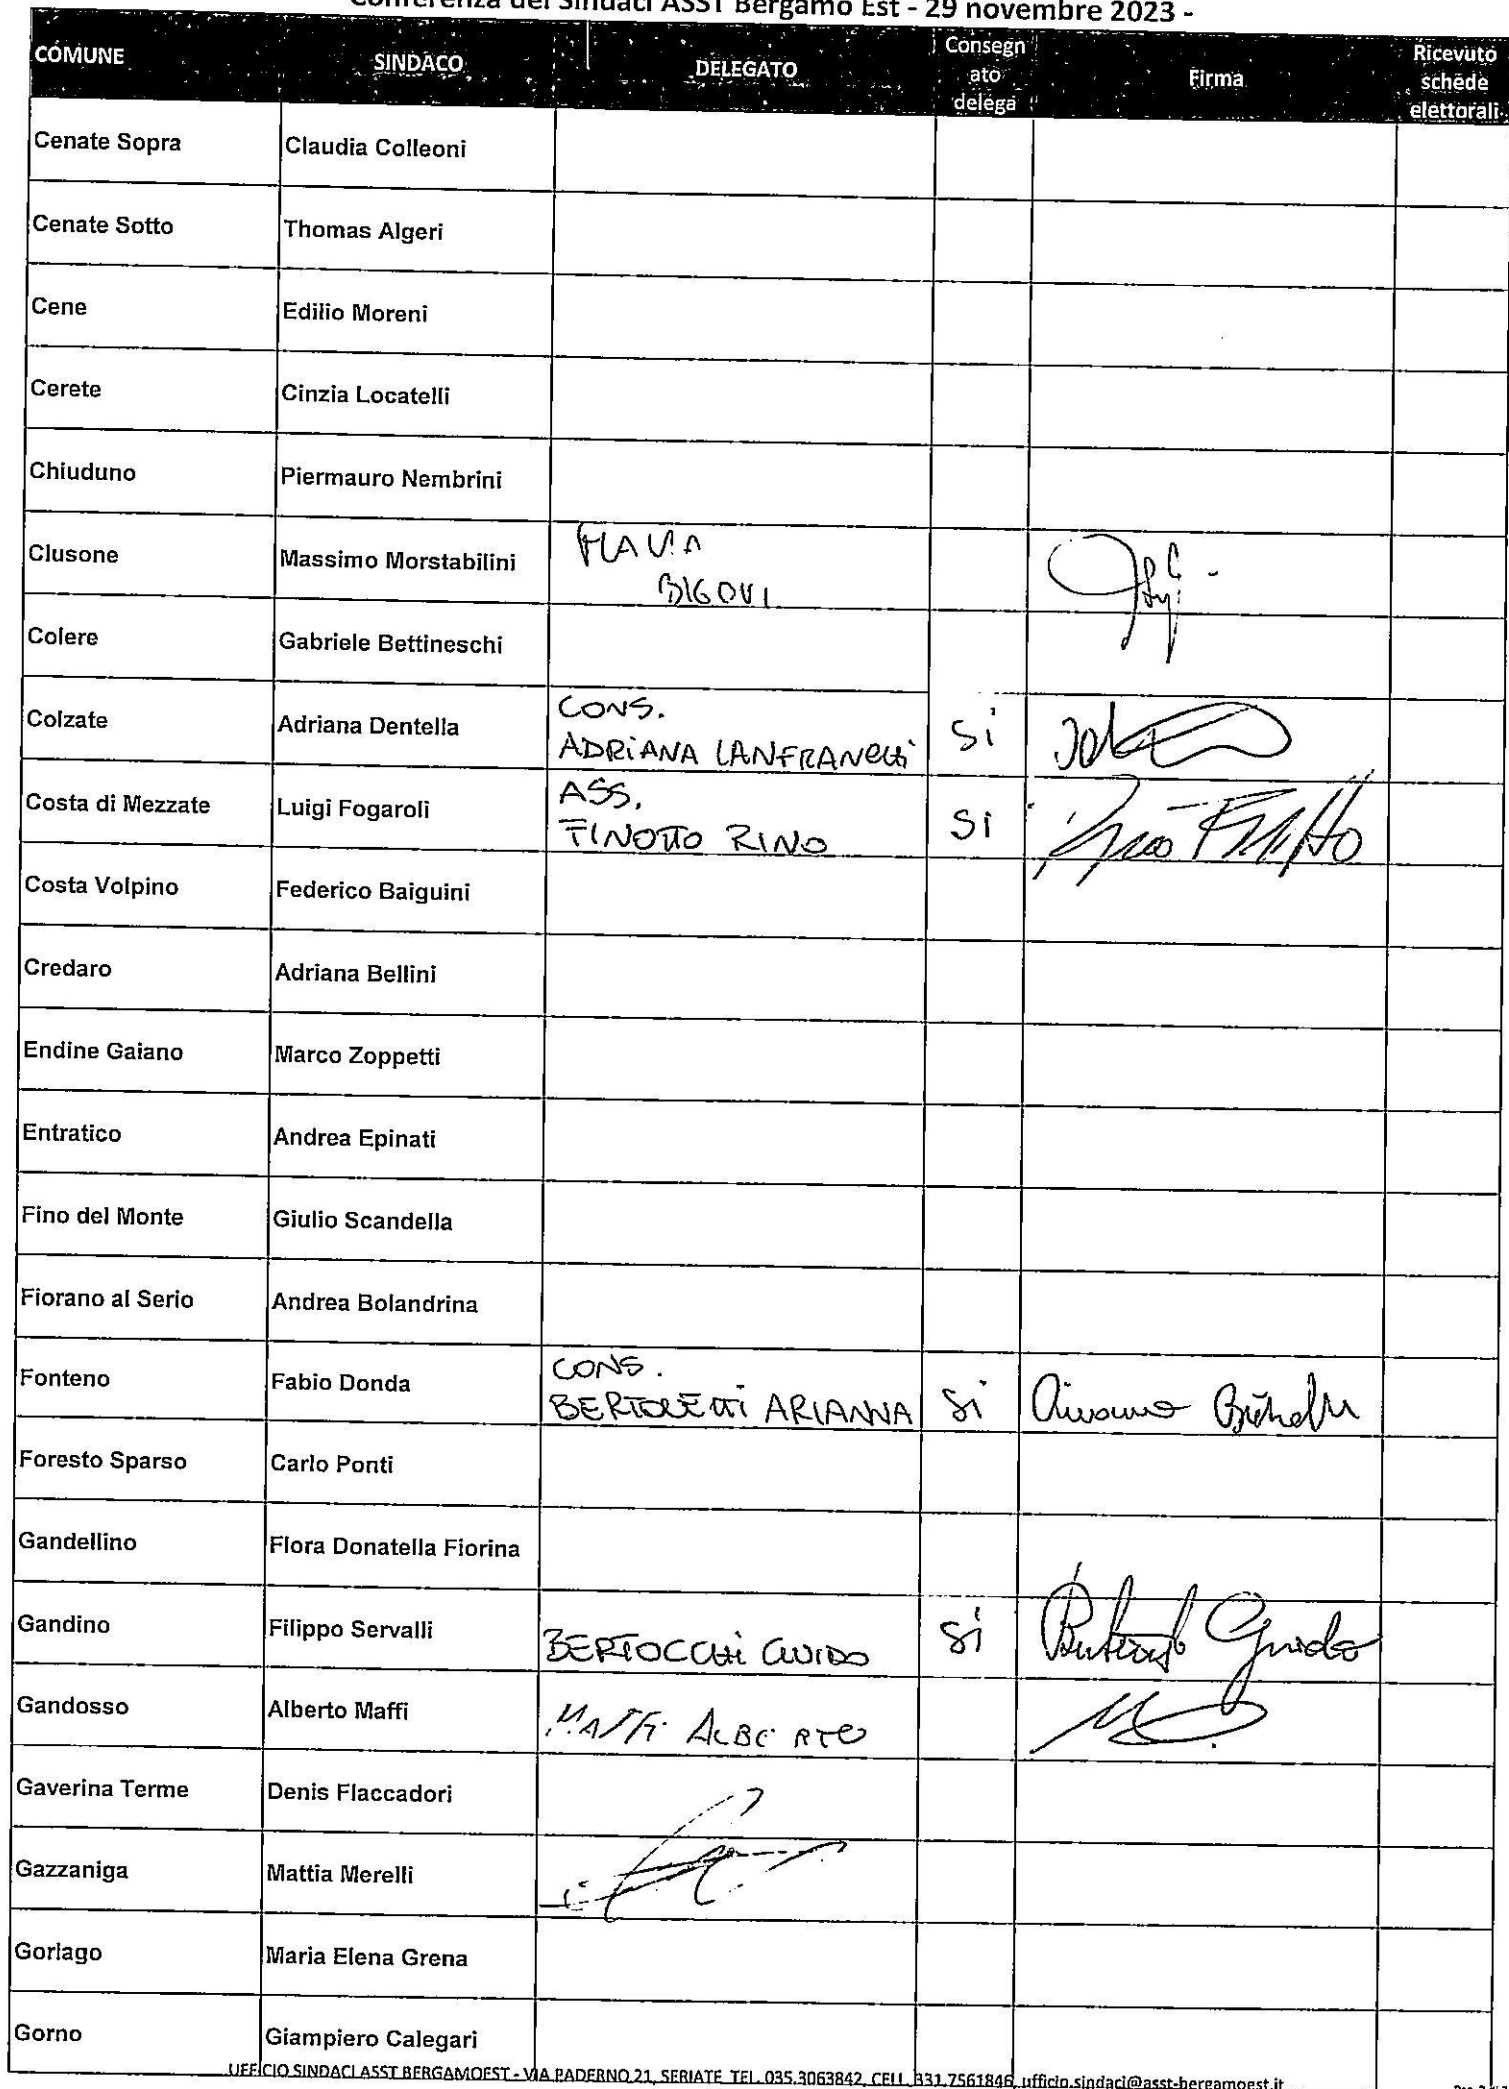 Conferenza dei Sindaci ASST Bergamo Est - 29 novembre 2023 -
COMUNE SINDACO DELEGATO Consegnato delega Firma Ricevuto schede elettorali
Cenate Sopra Claudia Colleoni
Cenate Sotto Thomas Algeri
Cene Edilio Moreni
Cerete Cinzia Locatelli
Chiuduno Piermauro Nembrini
Clusone Massimo Morstabilini FLAVIA
BIGONI
Colere Gabriele Bettineschi
CONS.
Colzate Adriana Dentella ADRIANA LANFRANCHI Si
ASS.
Costa di Mezzate Luigi Fogaroli FINOTTO RINO Si
Costa Volpino Federico Baiguini
Credaro Adriana Bellini
Endine Gaiano Marco Zoppetti
Entratico Andrea Epinati
Fino del Monte Giulio Scandella
Fiorano al Serio Andrea Bolandrina
CONS.
Fonteno Fabio Donda BERTOLETTI ARIANNA Si
Foresto Sparso Carlo Ponti
Gandellino Flora Donatella Fiorina
Gandino Filippo Servalli BERTOCCHI GUIDO Si Guido
Gandosso Alberto Maffi MAFFI ALBERTO
Gaverina Terme Denis Flaccadori
Gazzaniga Mattia Merelli
Gorlago Maria Elena Grena
Gorno Giampiero Calegari
UFFICIO SINDACI ASST BERGAMOEST - VIA PADERNO 21, SERIATE TEL. 035.3063842, CELL. 331.7561846, ufficio.sindaci@asst-bergamoest.it